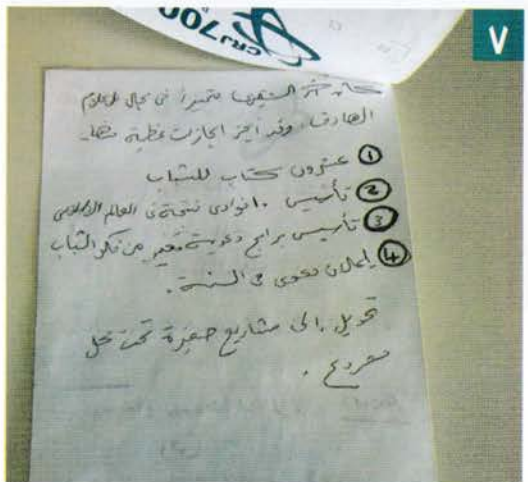 CRJ700
٧
متميزاً في مجال الإعلام
الهادف، وقد أنجز انجازات عظيمة منها
① عشرون كتاب للشباب
② تأسيس ١٠ نوادي في العالم الإسلامي
③ تأسيس برامج دعوية تغير من فكر الشباب
④ دعوي في السنة.
تحويل إلى مشاريع صغيرة تحت كل
مشروع.